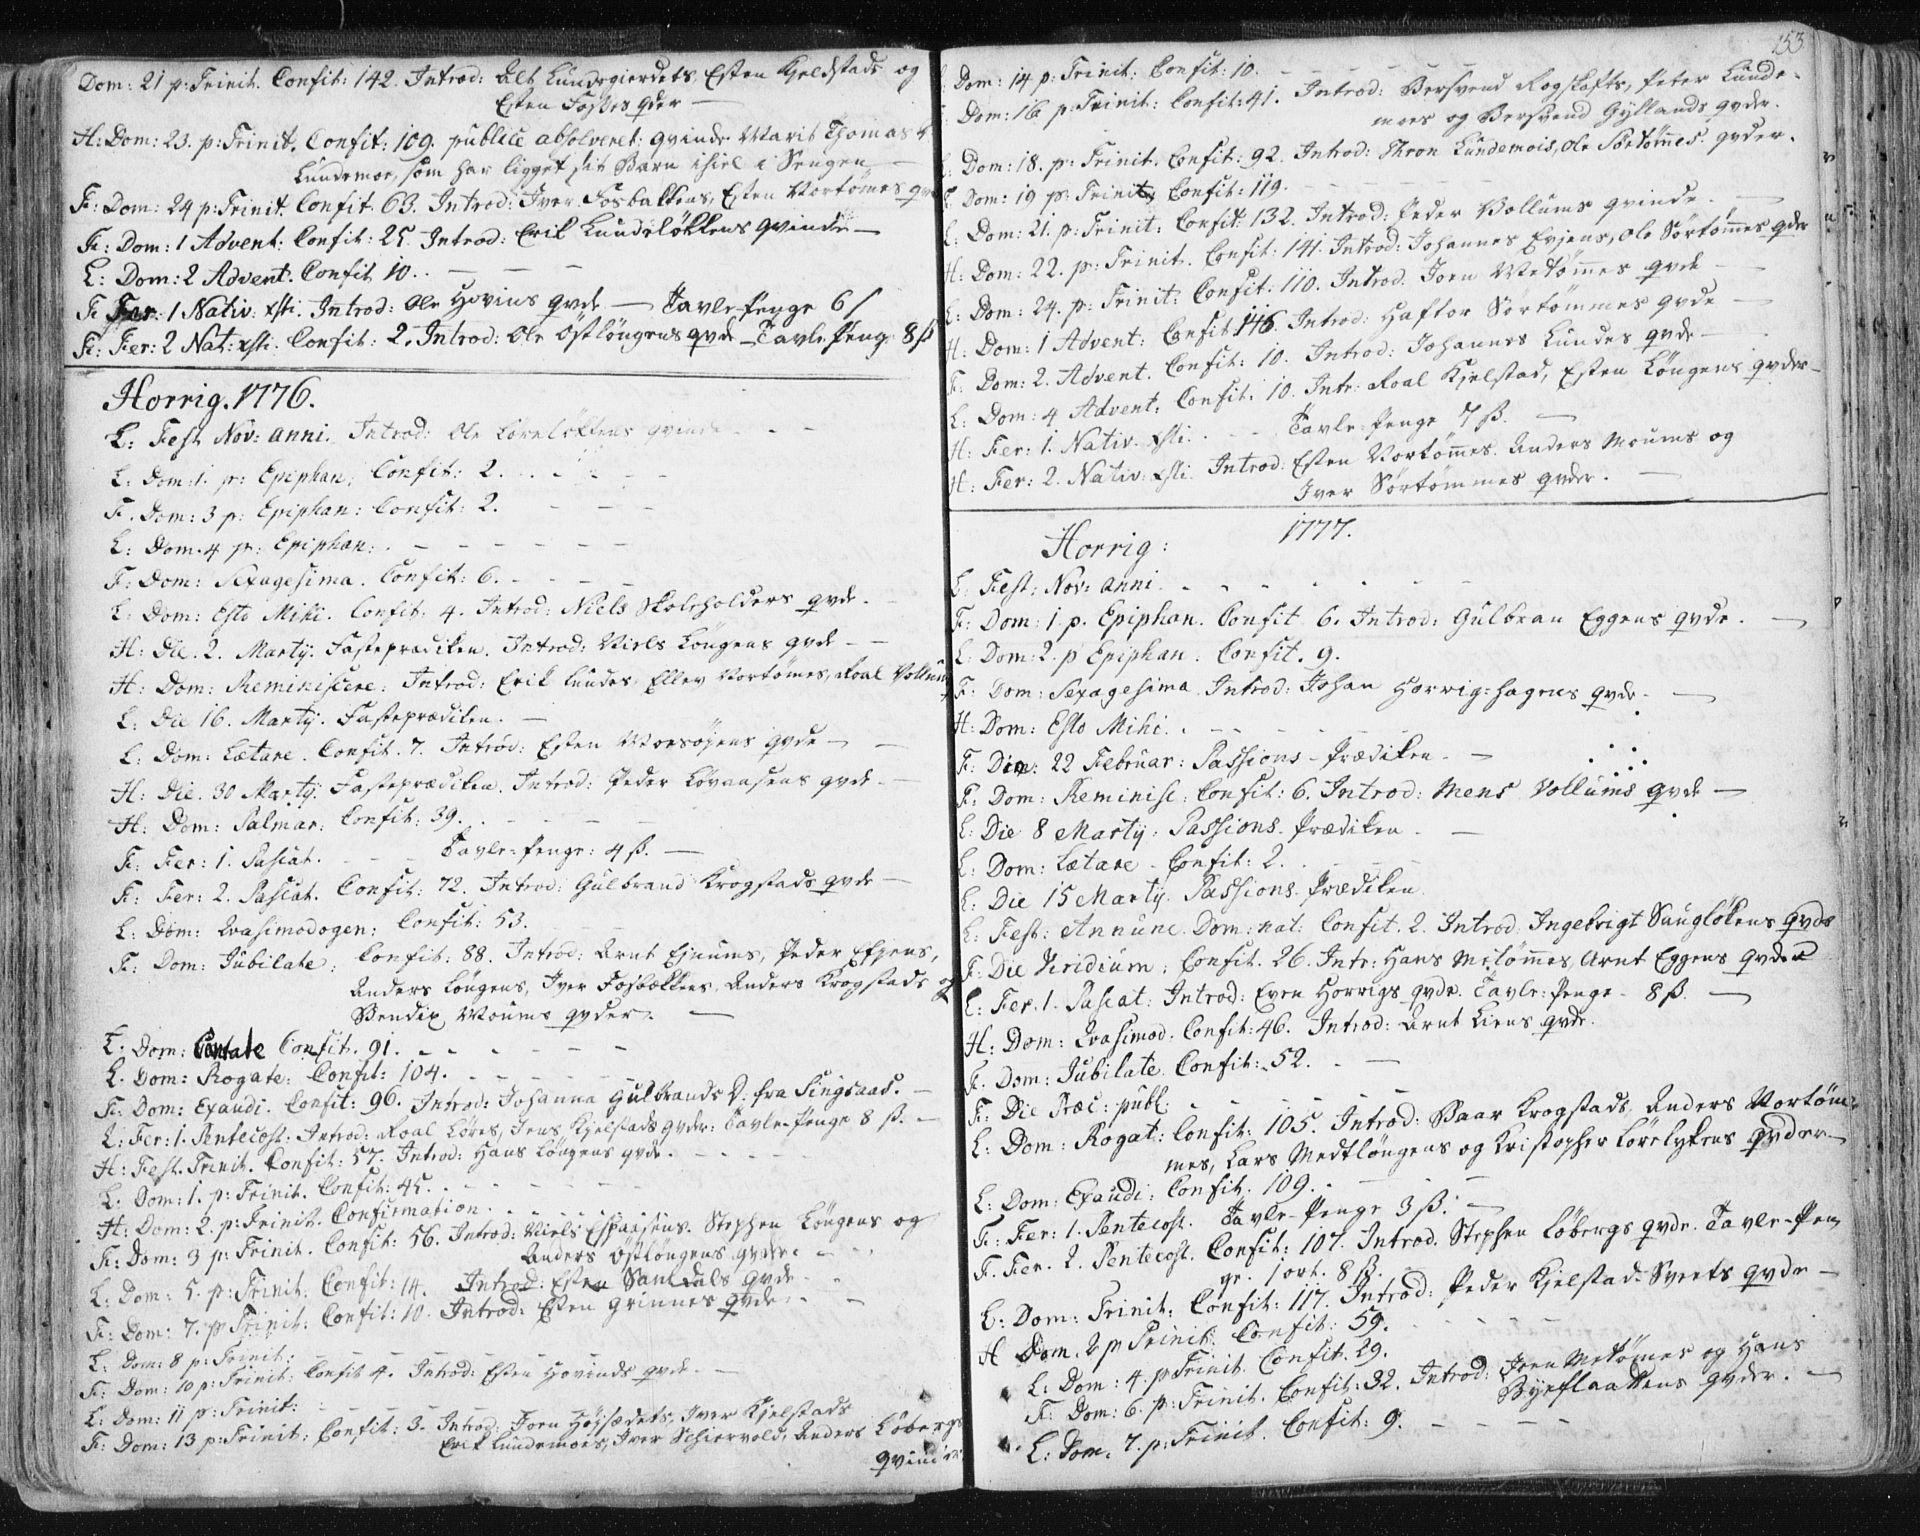 Dom: 21 p: Trinit. Confit: 142. Introd: Alt Lundsgierdets, Esten Kjeldstads og
Esten Foshes qder —
H: Dom: 23. p: Trinit. Confit: 109. publice absolveret: qvinde Marit Thomas
Lundemoe, som har ligget sit Barn ihiel i Sengen —
F: Dom: 24 p: Trinit. Confit. 63. Introd: Iver Fosbakkens, Esten Vortömes
F: Dom: 1 Advent: Confit: 25. Introd: Erik Lundsløkkens qvinde —
L: Dom: 2 Advent. Confit 10. . — — —
F: Fer: 1 Nativ: Xsti. Introd: Ole Hovins qvde — Tavle-penge 6 ſ
F: Fer: 2 Nat: Xsti. Confit: 2. Introd: Ole Östlöngens qvde — Tavle-Peng 8 ß
Horrig. 1776.
L: Fest Nov: anni. Introd: Ole Loreløkkens qvinde — —
L: Dom: 1. p: Epiphan: Confit: 2. . . — — —
F. Dom: 3 p: Epiphan: Confit: 2. — — —
L: Dom. 4 p: Epiphan: . — — — — — —
F: Dom: Sexagesima. Confit: 6. — — —
L: Dom: Esto Mihi. Confit: 4. Introd: Niels Skoleholders qvde.
H: Die. 2. Martij. Fastepradiken. Introd: Niels Löngens qvde —
H: Dom: Reminiscere: Introd: Erik Lundes, Ellev Vortömes, Roal Vollum
L: Die 16. Martij. Fasteprædiken. —
L: Dom: Lætare. Confit. 7. Introd: Esten Moesöyens qvde — —
H: Die. 30 Martij. Fasteprædiken. Introd: Peder Lövaasens qvde —
H: Dom: Palmar: Confit: 39. . — — — —
F: Fer: 1. Pascat. — — — Tavle-penge: 4 ß. —
F: Fer: 2. Pascat. Confit: 72. Introd: Gulbrand Krogstads qvde —
L: Dom: Qvasimodogen: Confit: 53.
F: Dom: Jubilate: Confit: 88. Introd: Arnt Ejnums, Peder Espens,
Anders Löngens, Iver Fosbækkens, Anders Krogstads og
Bendix Moums qvder. —
L: Dom: Cantate Confit. 91. — — — — — —
L. Dom: Rogate: Confit: 104. — — — —
F: Dom: Exaudi. Confit: 96. Introd: Johanna Gulbrands D: fra Singsaas. —
L: Fer: 1. Pentecost: Introd: Roal Löres, Jens Kjelstads qvder: Tavle-Penge 8 ß. —
H: Fest. Trinit. Confit: 57. Introd: Hans Löngens qvde. — — — —
L: Dom: 1. p: Trinit. Confit: 45. — — — —
H: Dom: 2. p: Trinit. Confirmation. . — — —
F: Dom: 3 p: Trinit. Confit: 56. Introd: Niels Espaasens. Stephen Löngens og
Anders Östlöngens qvder. —
L: Dom: 5. p: Trinit. Confit: 14. Introd: Esten Samdals qvde. .
F: Dom: 7. p Trinit: Confit: 10. Introd: Esten Grinnes qvde. —
L: Dom: 8 p: Trinit: — — — —
F: Dom: 10 p: Trinit: Confit 4. Introd: Esten Hovinds qvde. —
L: Dom: 11 p: Trinit: — — — —
F: Dom: 13 p: Trinit: Confit: 3. Introd: Joen Höjsædets, Iver Kjelstads
Erik Lundemoes, Iver Schiervold, Anders Löbergs
qvinder
153
Dom: 14 p: Trinit: Confit: 10. — — — —
Dom: 16 p: Trinit: Confit: 41. Introd: Bersvend Rogstofts, Peter Lunde-
moes og Bersvend Gyllands qvder.
Dom: 18. p: Trinit. Confit: 92. Introd: Thron Lundemois, Ole Sörtömes qvder.
Dom: 19 p: Trinit. Confit: 119. — — —
L: Dom: 21. p: Trinit: Confit: 132. Introd: Peder Vollums qvinde. —
H: Dom: 22. p: Trinit. Confit: 141. Introd: Johannes Evjens, Ole Sörtömes qder
L: Dom: 24. p: Trinit: Confit: 110. Introd. Joen Metömes qvde —
H: Dom: 1 Advent: Confit 146. Introd: Haftor Sörtömmes qvde —
F: Dom: 2. Advent. Confit: 10. Introd: Johannes Lundes qvde —
L: Dom: 4 Advent: Confit: 10. Intr: Roal Kjelstad, Esten Löngens qvder —
H: Fer: 1. Nativ. Xsti. . — — Tavle-penge 7 ß. —
H: Fer: 2. Nativ: Xsti. Introd: Esten Vortömes. Anders Moums og
Iver Sörtömmes qvder. —
Horrig: 1777.
L: Fest: Nov: anni. . — — —
F: Dom: 1 p. Epiphan. Confit 6. Introd: Gulbran Eggens qvde. —
L: Dom: 2. p Epiphan. Confit. 9.
F: Dom: Sexagesima. Introd: Johan Horrig-hagens qvde. —
H: Dom: Esto Mihi. . — — — —
F: Die: 22 Februar: Passions-Prædiken. —
F: Dom: Reminisc: Confit: 6. Introd: Mens Vollums qvde —
L: Die 8 Martij: Passions-Prædiken. —
L: Dom: Lætare - Confit: 2. . — — —
L: Die 15 Martij. Passions-Prædiken.
L: Fest: Annunc. Dom: nat: Confit. 2. Introd. Ingebrigt Saugløkens qvde
F: Die Viridium: Confit. 26. Intr: Hans Metömmes, Arnt Eggens qvder
L: Fer. 1. Pascat: Introd: Even Horrigs qvde. Tavle-penge - 8 ß. —
H: Dom: Qvasimod: Confit: 46. Introd: Arnt Liens qvde.
F. Dom: Jubilate. Confit: 52. . —
F: Die Præc: publ: — — — —
L: Dom: Rogat: Confit: 105. Introd: Baar Krogstads, Anders Vortöm-
mes, Lars Medtlöngens og Cristopher Lörelykens qvder —
L: Dom: Exaudi: Confit. 109. . — — —
F: Fer: 1. Pentecost. Tavle-Penge 3 ß. —
F: Fer. 2. Pentecost. Confit: 107. Introd. Stephen Löbergs qvde. Tavle-Pen
ge. 1 ort. 8 ß. —
L: Dom: Trinit: Confit: 117. Introd: Peder Kjelstad-Sveets qvde —
H Dom. 2 p Trinit: Confit: 59.
L: Dom: 4. p Trinit. Confit. 29.
F: Dom: 6. p: Trinit. Confit: 32. Introd: Joen Metömes og Hans
Byeflaattens qvder. —
L: Dom. 7. p: Trinit. Confit: 9. — — — —